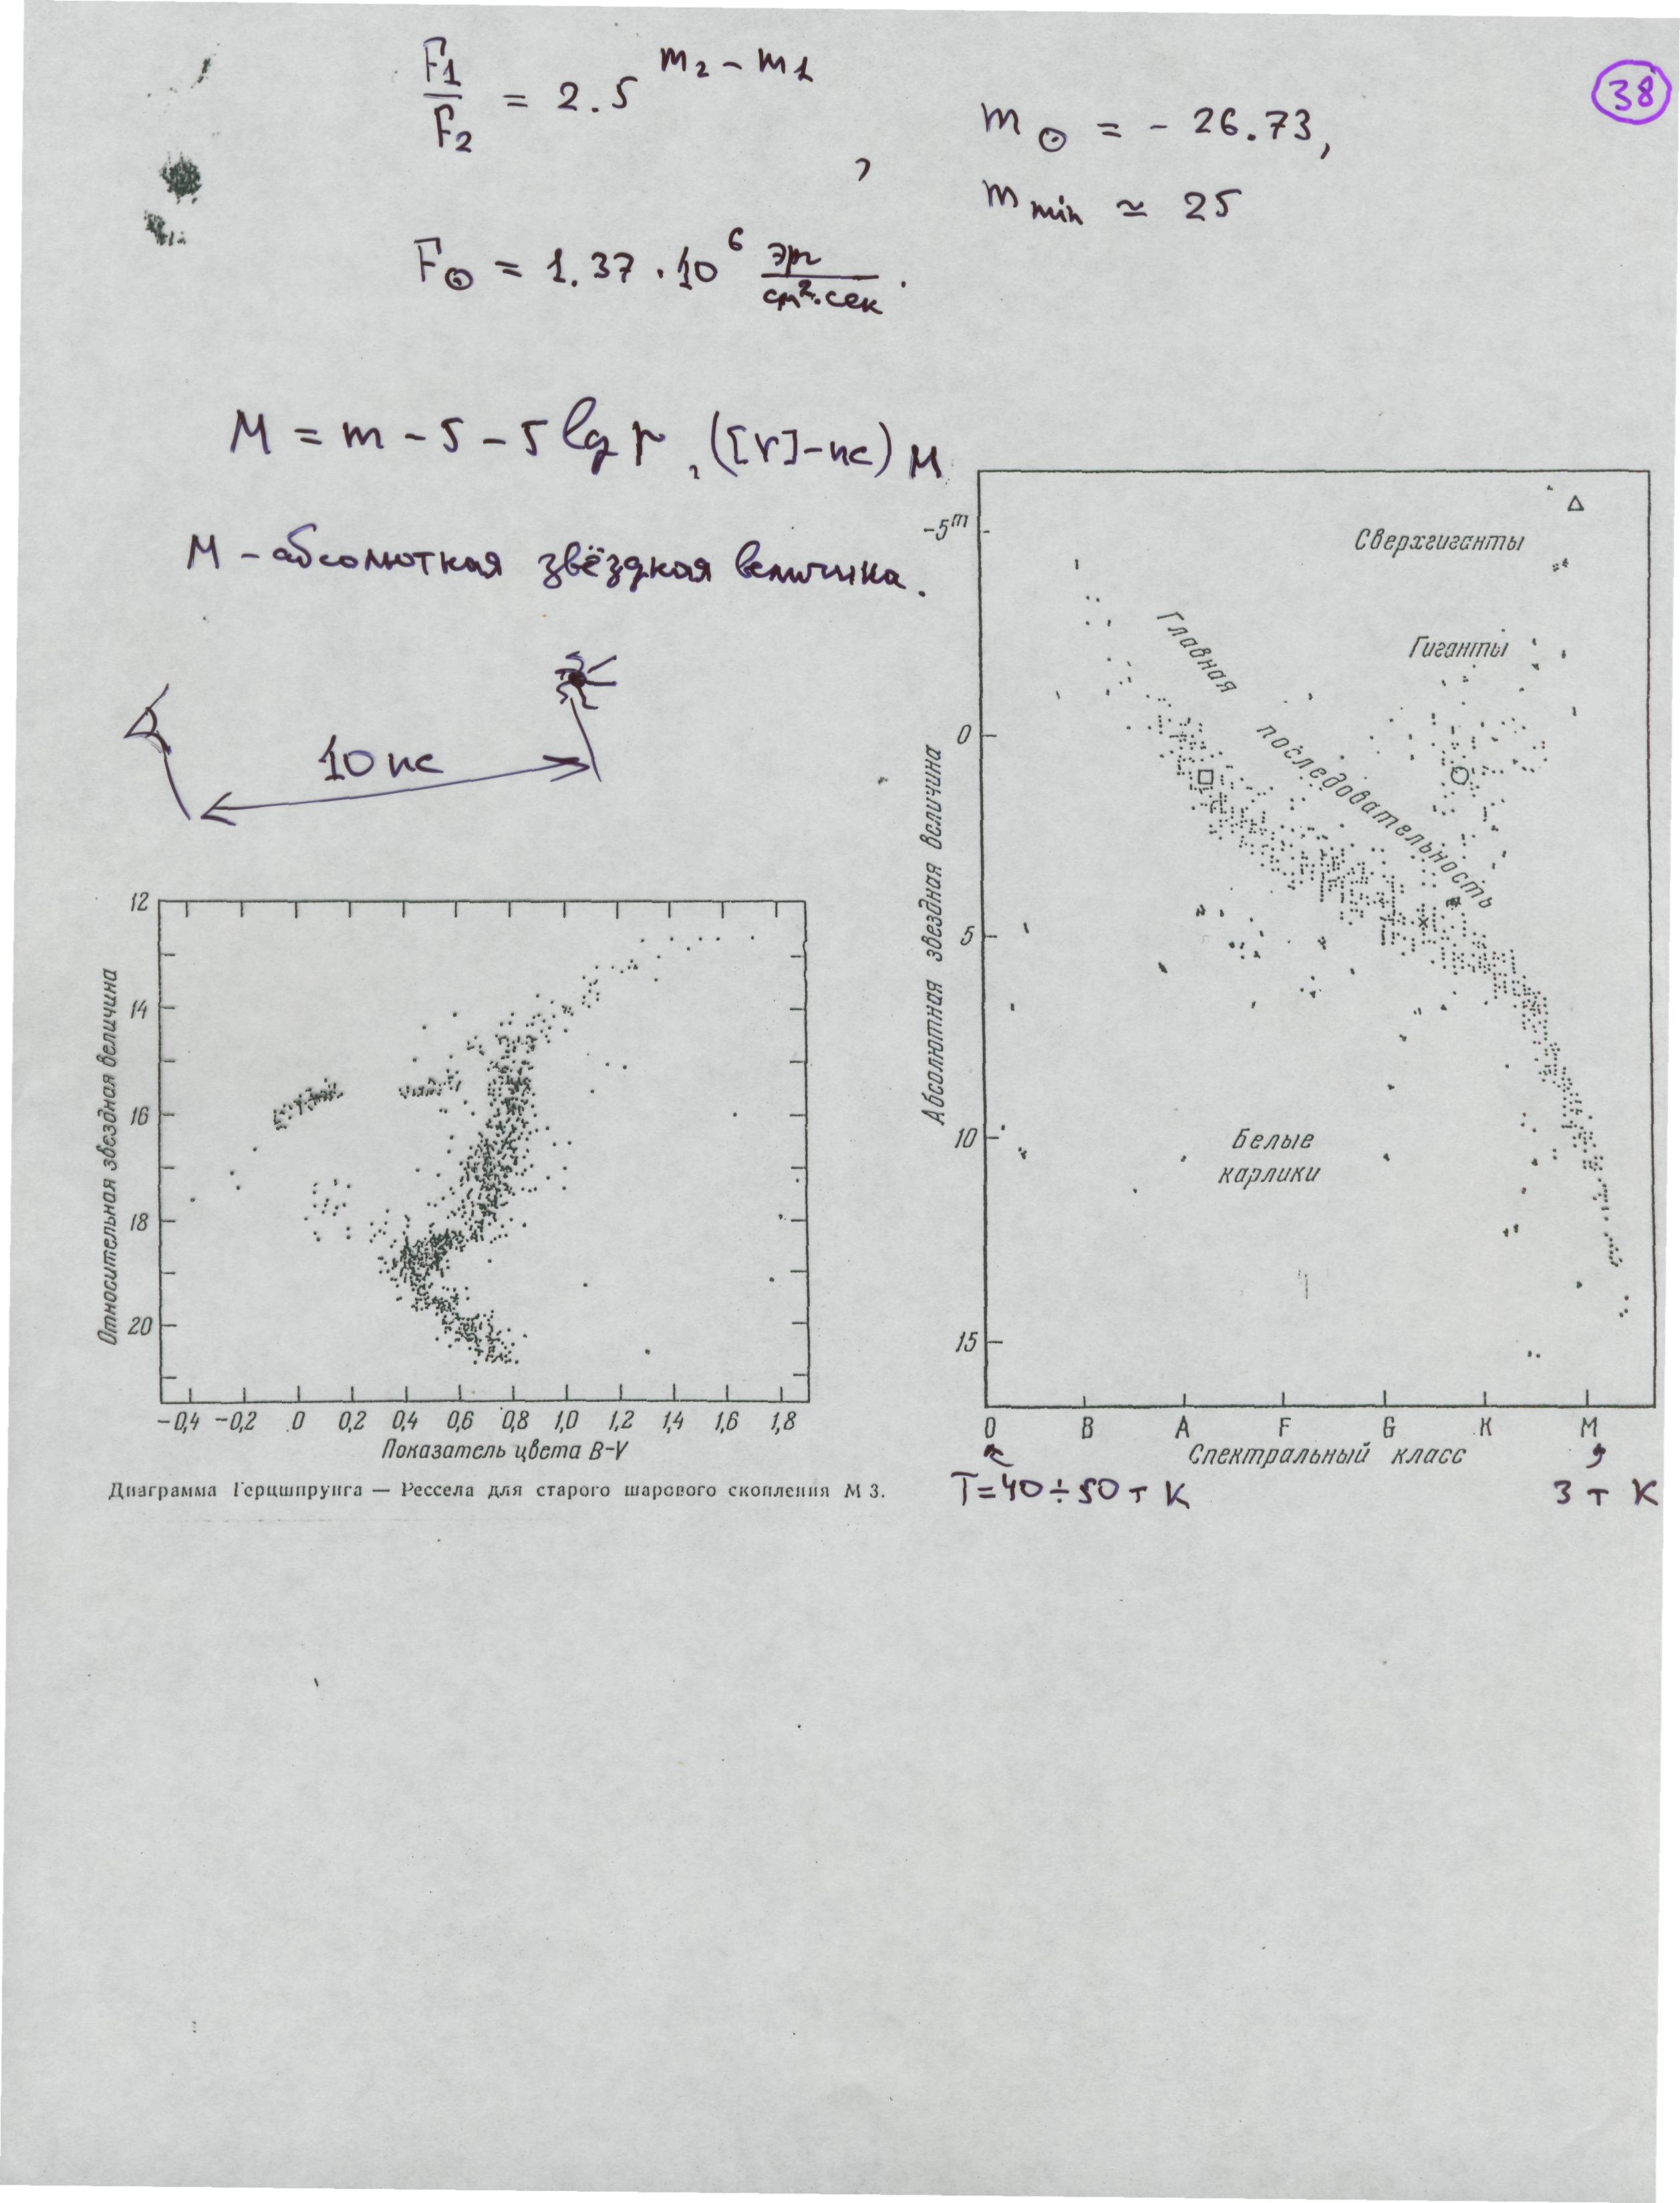 38
F1/F2 = 2.5^(m2 - m1),
m⊙ = - 26.73,
m min ≃ 25
F⊙ = 1.37 · 10^6 эрг/см²·сек.
M = m - 5 - 5 lg r, ([r]-пс)
M - абсолютная звёздная величина.
10 пс
12
14
16
18
20
Относительная звездная величина
-0,4 -0,2 0 0,2 0,4 0,6 0,8 1,0 1,2 1,4 1,6 1,8
Показатель цвета B-V
Диаграмма Герцшпрунга — Рессела для старого шарового скопления М 3.
M
-5^m
0
5
10
15
Абсолютная звездная величина
Сверхгиганты
Гиганты
Главная последовательность
Белые
карлики
O B A F G K M
Спектральный класс
T=40÷50 т К
3 т К